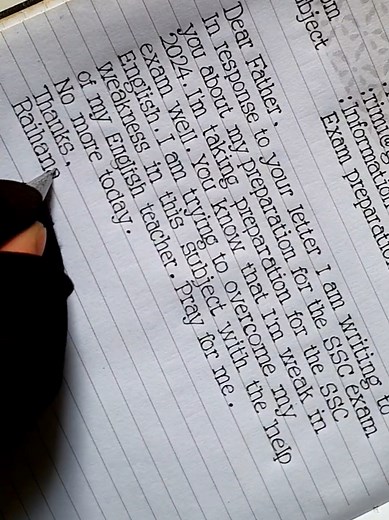 om
bject
: information
Exam preparation
Dear Father,
In response to your letter I am writing to
you about my preparation for the SSC exam
2024. I'm taking preparation for the SSC
exam well. You know that I'm weak in
English. I am trying to overcome my
weakness in this subject with the help
of my English teacher. Pray for me.
No more today.
Thanks,
Raihan